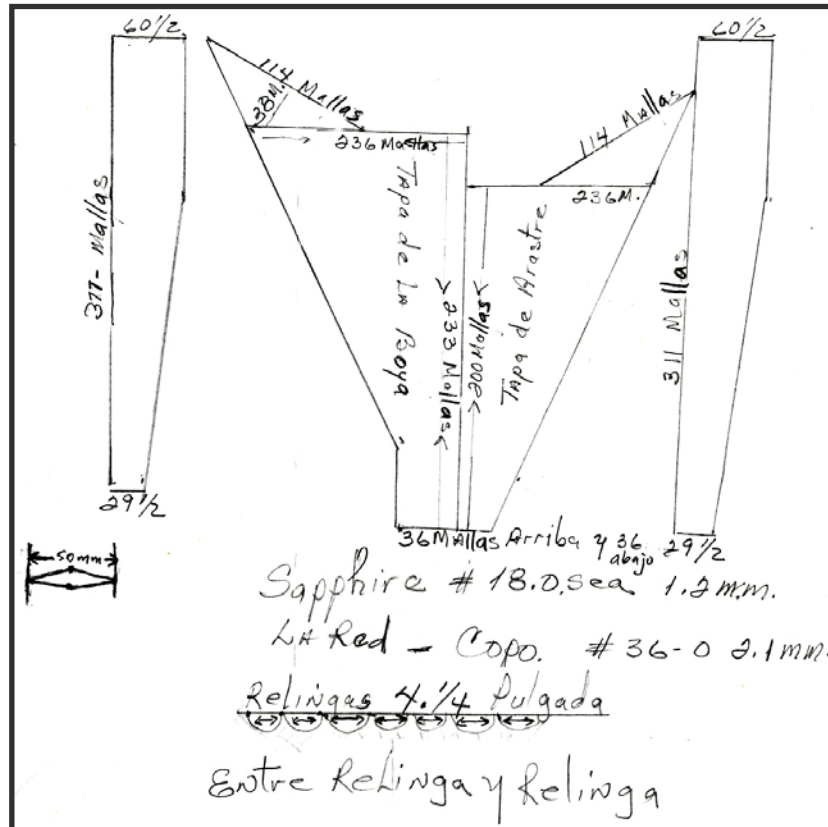 60 1/2
60 1/2
114 Mallas
38 M.
236 Mallas
114 Mallas
236 M.
377- Mallas
Tapa de La Boya
>233 Mallas<
>200 Mallas<
Tapa de Arastre
311 Mallas
29 1/2
36 Mallas Arriba y 36 abajo
29 1/2
50mm
Sapphire # 18.O.sea 1.2 m.m.
LA Red - Copo. # 36-0 2.1 mm.
Relingas 4.1/4 Pulgada
Entre Relinga y Relinga